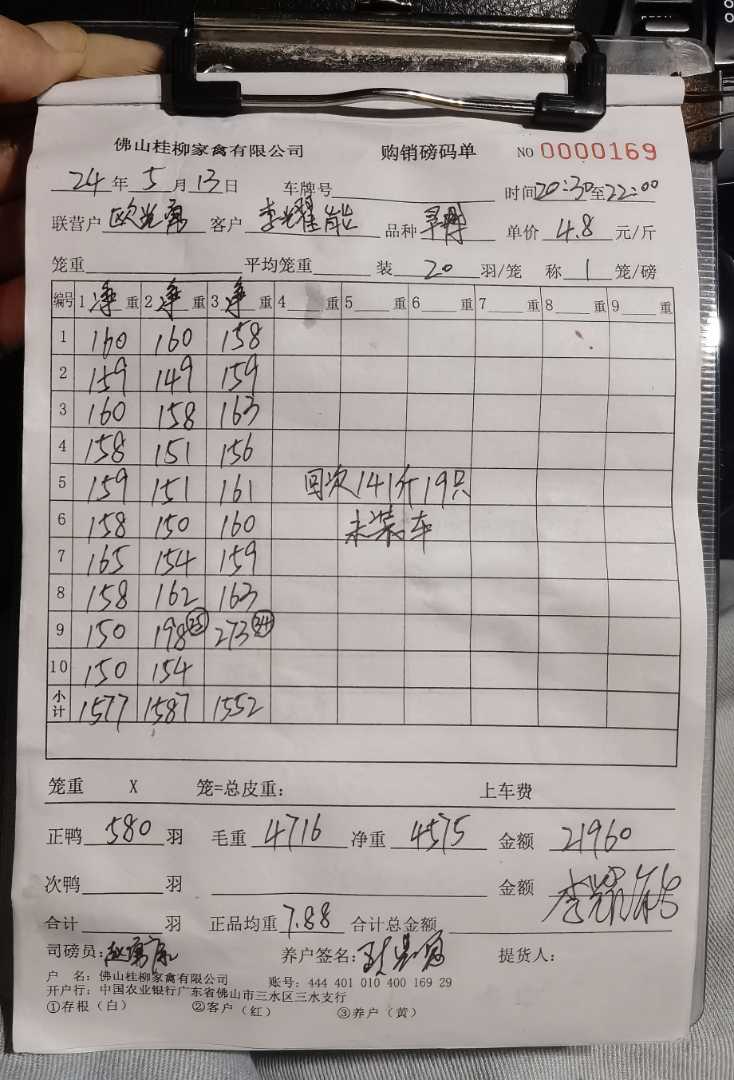 佛山桂柳家禽有限公司 购销磅码单 NO 0000169
24年5月13日 车牌号 时间20:30至22:00
联营户 客户 李耀能 品种 单价 4.8 元/斤
笼重 平均笼重 装 20 羽/笼 称 1 笼/磅
编号 1 净 重 2 净 重 3 净 重 4 重 5 重 6 重 7 重 8 重 9 重
1 160 160 158
2 159 149 159
3 160 158 163
4 158 151 156
5 159 151 161 回次141斤19只
6 158 150 160 未装车
7 165 154 159
8 158 162 163
9 150 198㉕ 273㉞
10 150 154
小计 1577 1587 1552
笼重 X 笼=总皮重: 上车费
正鸭 580 羽 毛重 4716 净重 4575 金额 21960
次鸭 羽 金额 李耀能
合计 羽 正品均重 7.88 合计总金额
司磅员: 养户签名: 提货人:
户 名: 佛山桂柳家禽有限公司 账号: 444 401 010 400 169 29
开户行: 中国农业银行广东省佛山市三水区三水支行
①存根(白) ②客户(红) ③养户(黄)